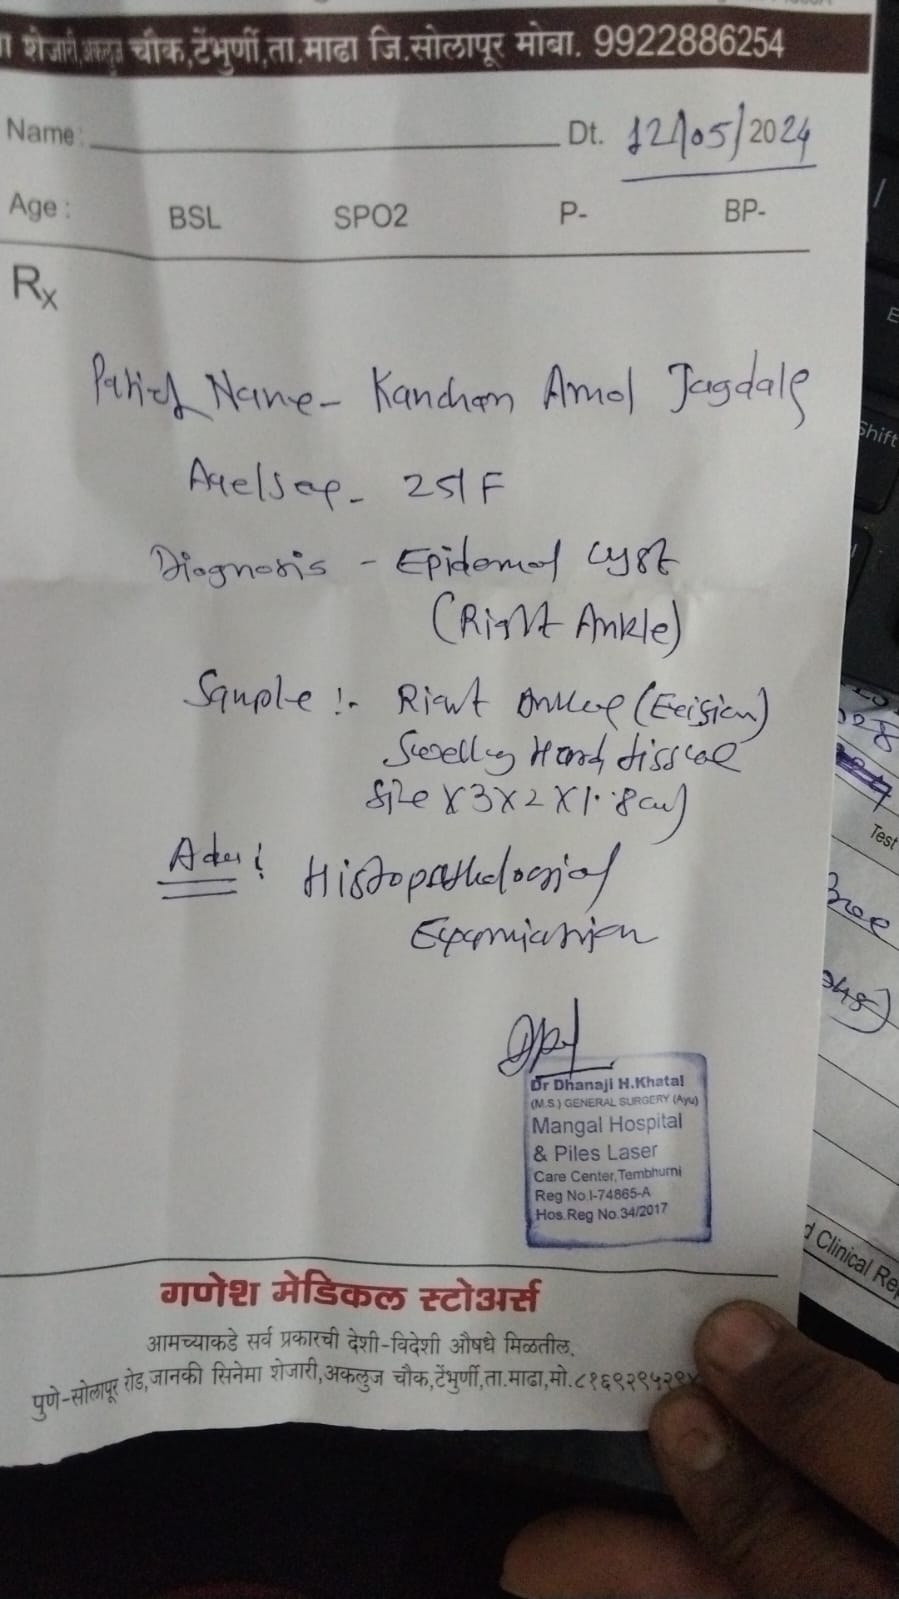 शेजारी,अकलुज चौक,टेंभुर्णी,ता.माढा जि.सोलापूर मोबा. 9922886254
Name: Dt. 12/05/2024
Age : BSL SPO2 P- BP-
Rx
Patient Name - Kanchan Amol Jagdale
Age/Sex - 25/F
Diagnosis - Epidermal cyst
(Right Ankle)
Sample :- Right Ankle (Excision)
Swelling Hard tissue
size X 3 X 2 X 1.8 cm)
Histopathological
Examination
Dr Dhanaji H.Khatal
(M.S.) GENERAL SURGERY (Ayu)
Mangal Hospital
& Piles Laser
Care Center,Tembhurni
Reg No.I-74865-A
Hos.Reg No.34/2017
गणेश मेडिकल स्टोअर्स
आमच्याकडे सर्व प्रकारची देशी-विदेशी औषधे मिळतील.
पुणे-सोलापूर रोड,जानकी सिनेमा शेजारी,अकलुज चौक,टेंभुर्णी,ता.माढा,मो.
Shift
Test
Clinical